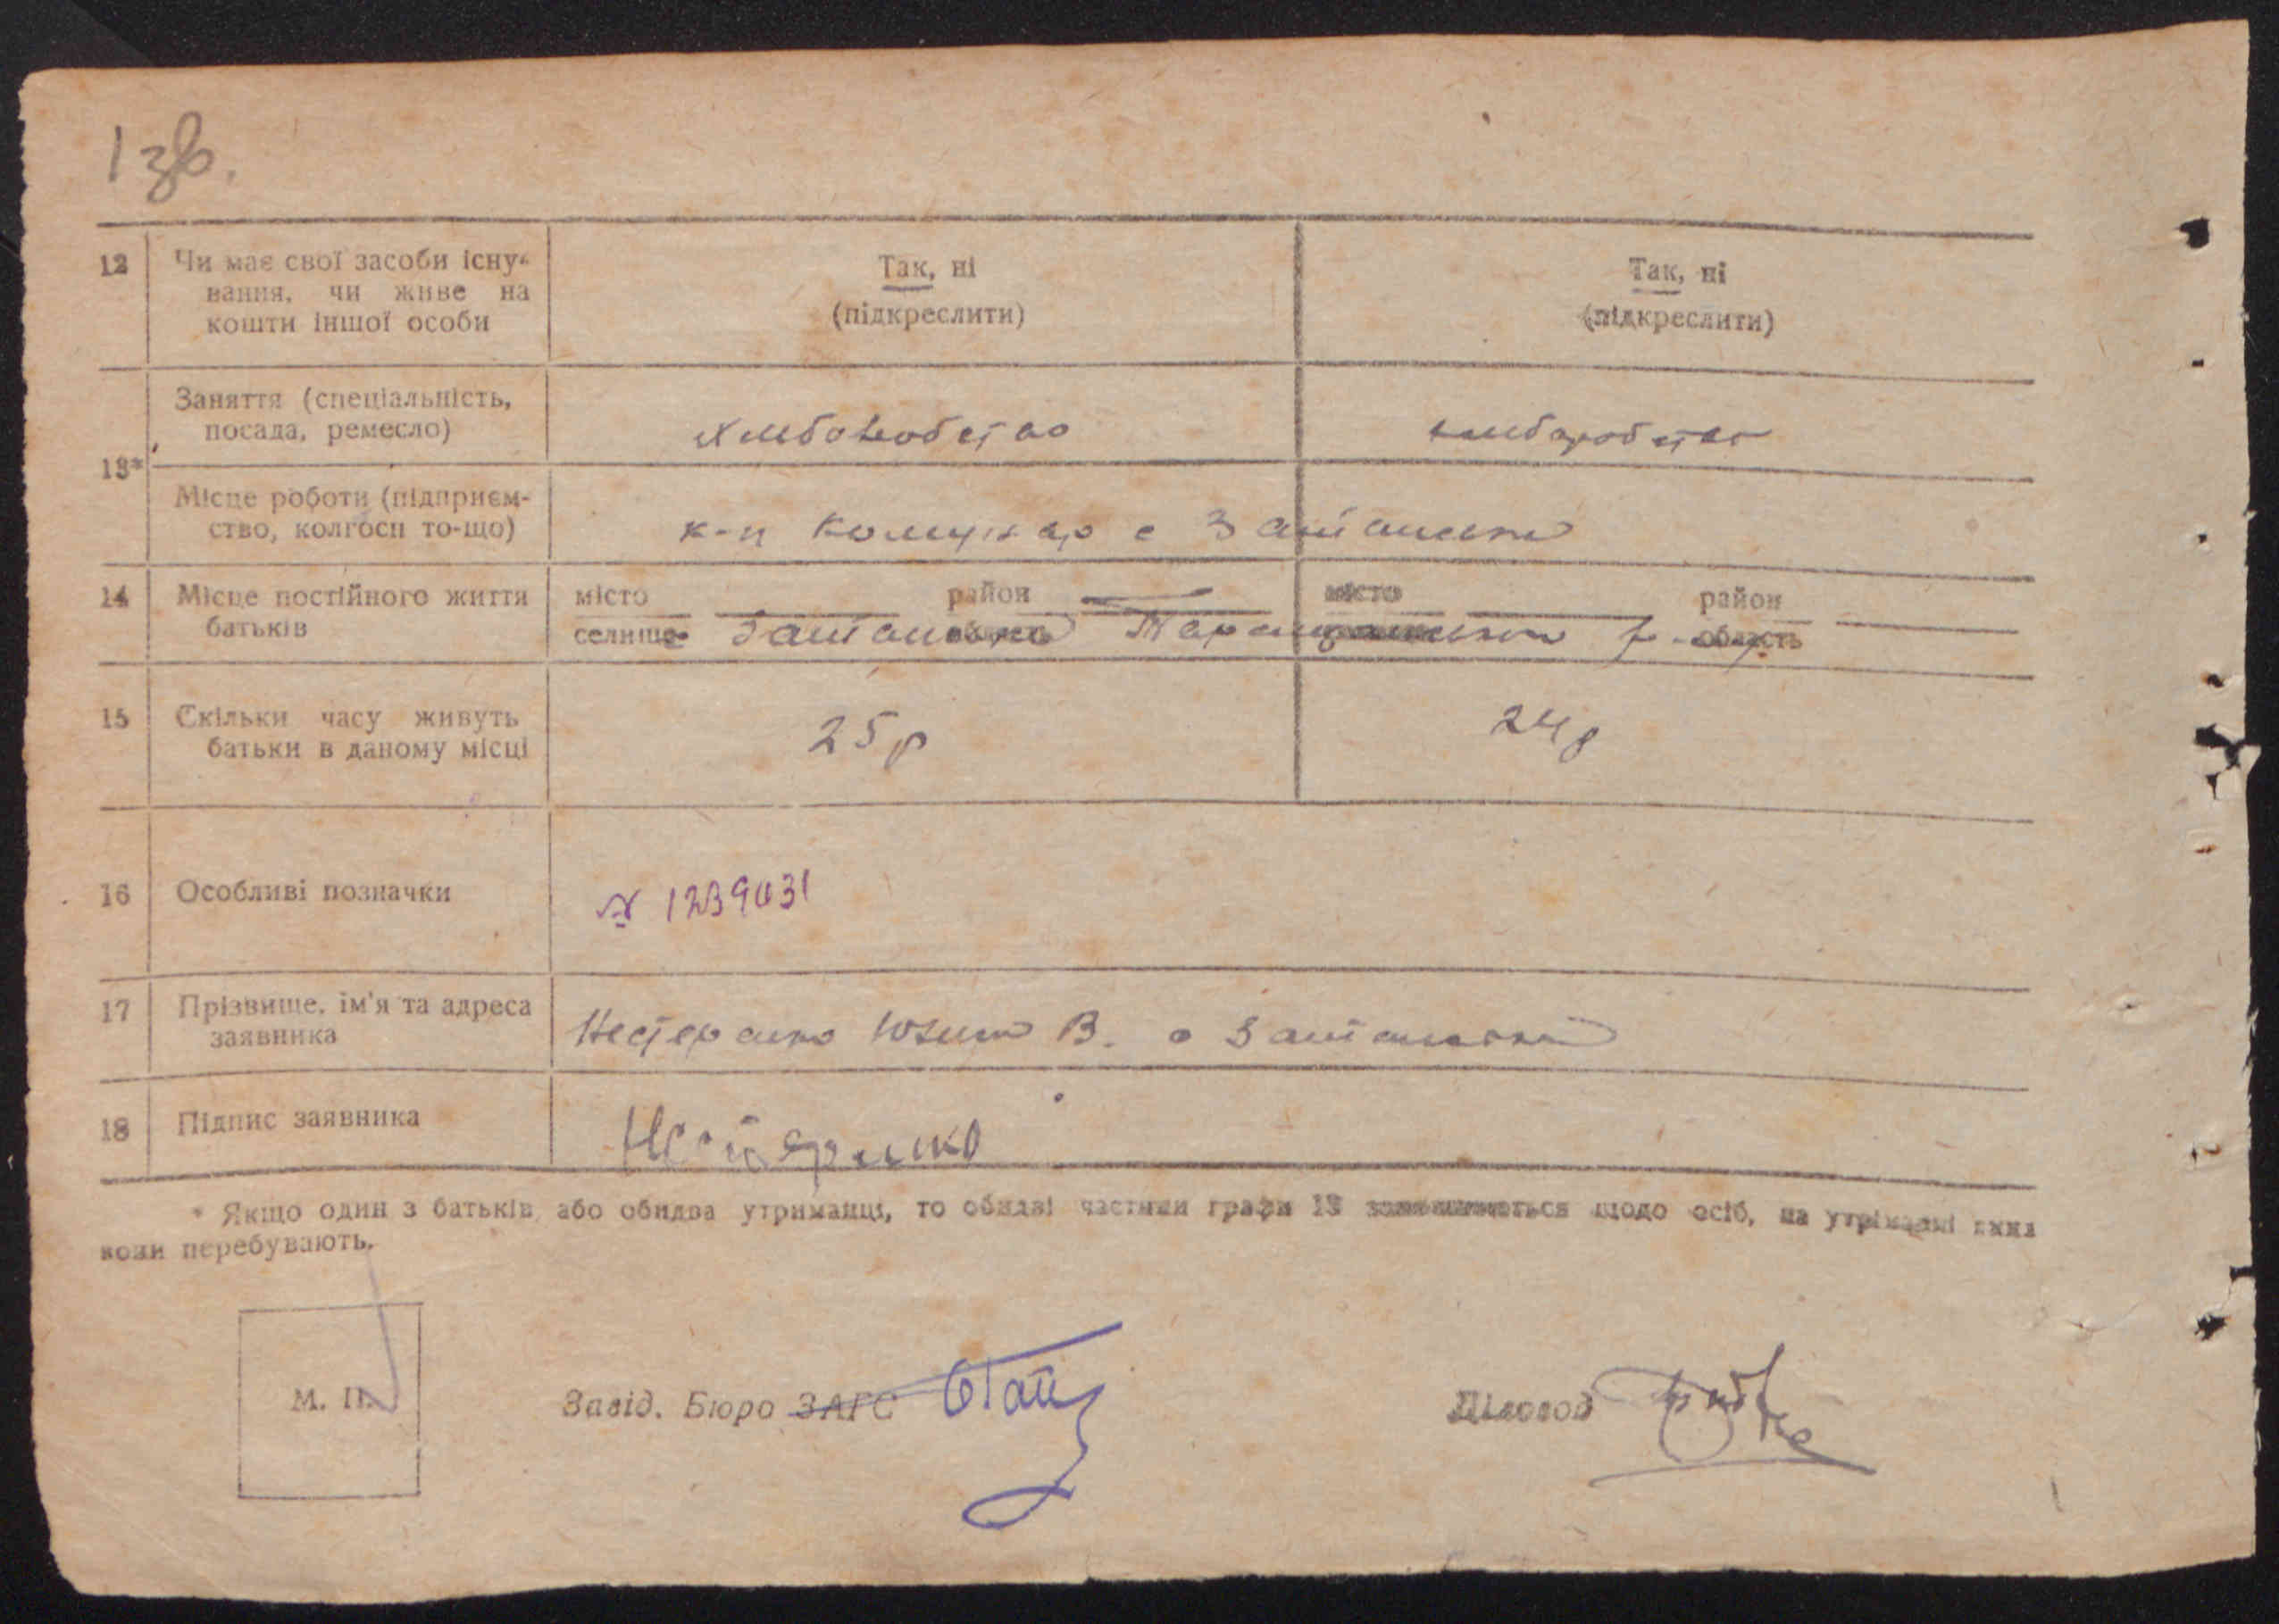 1 зв.
12 Чи має свої засоби існу- Так, ні Так, ні
вання, чи живе на (підкреслити) (підкреслити)
кошти іншої особи
Заняття (спеціальність,
посада, ремесло) хліборобство хліборобство
13*
Місце роботи (підприєм-
ство, колгосп то-що) к-п Комунар с
14 Місце постійного життя місто район місто район
батьків селище Таращанськ р- область
15 Скільки часу живуть 25 р 24 р
батьки в даному місці
16 Особливі позначки № 1239031
17 Прізвище, ім'я та адреса
заявника Нестеренко В. с
18 Підпис заявника Нестеренко
* Якщо один з батьків або обидва утриманці, то обидві частини графи 13 щодо осіб, на утриманні яких
вони перебувають.
М. П. Завід. Бюро ЗАГС Діловод